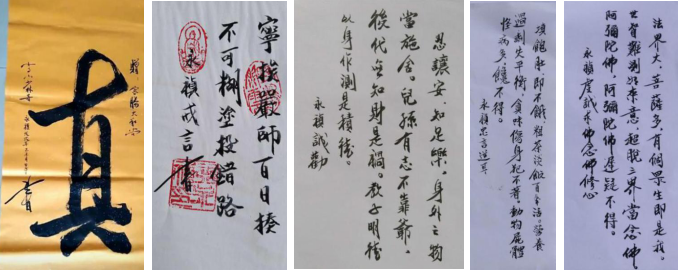 真
寧挨嚴師百日揍
不可糊塗投錯路
永禎戒言
忍讓安，知足樂，身外之物
當施舍。兒孫有志不靠爺，
後代無知財是禍。教子明德
以身作測是積德。
永禎誠勸
填飽肚即不餓粗茶淡飯百年活。營養
過剩失平衡，貪味傷身犯，動物屍體
怪病多饒不得。
永禎忠言送君
法界大，菩薩多，有個眾生即是我。
難割如來意，超脫三界當念佛。
阿彌陀佛，阿彌陀佛遲疑不得。
永禎虔誠求佛念佛修心